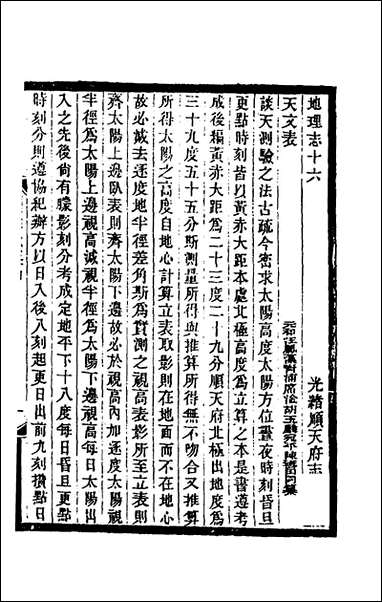 地理志十六
光緒順天府志
天文表
談天測驗之法古疏今密求太陽高度太陽方位晝夜時刻昔旦
更點時刻皆以黃赤大距本處北極高度爲立算之本是書遵考
成後編黃赤大距爲二十三度二十九分順天府北極出地度爲
三十九度五十五分斯測量所得與推算所得無不吻合又推算
所得太陽之高度自地心計算立表取影則在地面而不在地心
故必減去逐度地半徑差角斯爲實測之視高表影所至立表則
齊太陽上邊臥表則齊太陽下邊故必減太陽半徑爲下邊視高加太陽
半徑爲太陽上邊視高誠視半徑爲太陽下邊視高每日太陽出
入之先後尙有矇影刻分考成定地平下十八度每日昏旦更點
時刻分則遵協紀辦方以日入後八刻起更日出前九刻攢點日